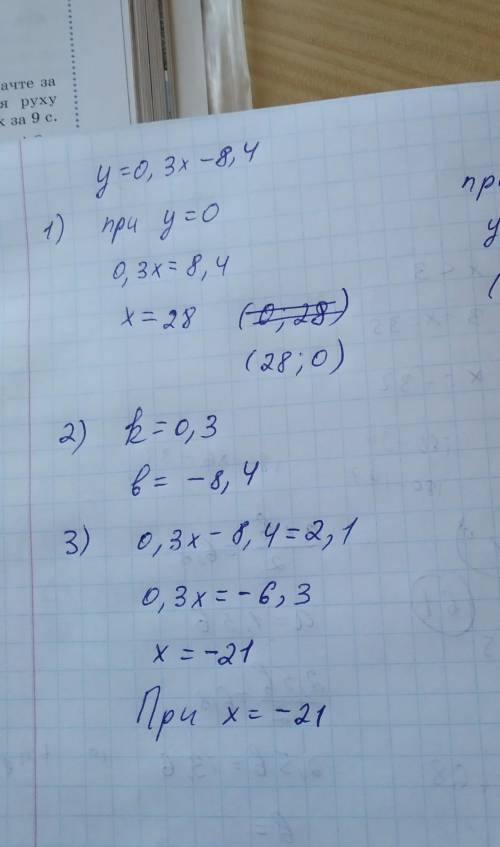 ачте за
я руху
к за 9 с.
y=0,3x-8,4
1) при y=0
0,3x=8,4
x=28 (0;28)
(28;0)
2) k=0,3
b=-8,4
3) 0,3x-8,4=2,1
0,3x=-6,3
x=-21
При x=-21
при
y
(